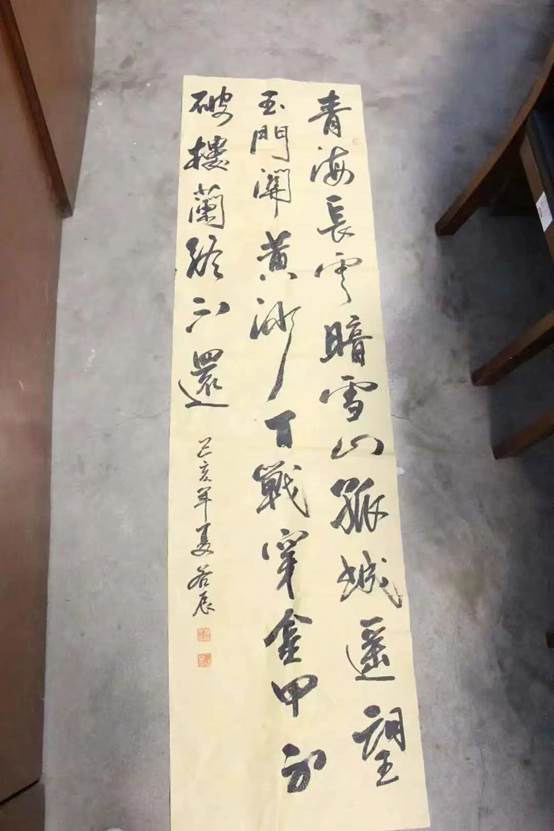 青海長雲暗雪山孤城遥望
玉門關黄沙百戰穿金甲不
破樓蘭終不還
己亥年夏若辰